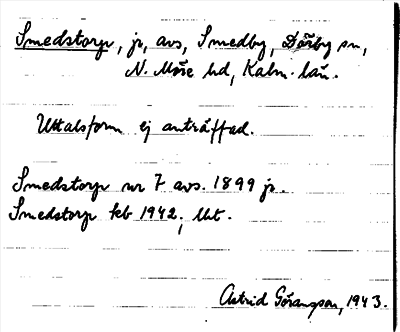 Smedstorp, jr, avs, Smedby, Dörby sn,
N. Möre hd, Kalm. län.
Uttalsform ej anträffad.
Smedstorp nr 7 avs. 1899 jr.
Smedstorp kb 1942, lht.
Astrid Göransson, 1943.